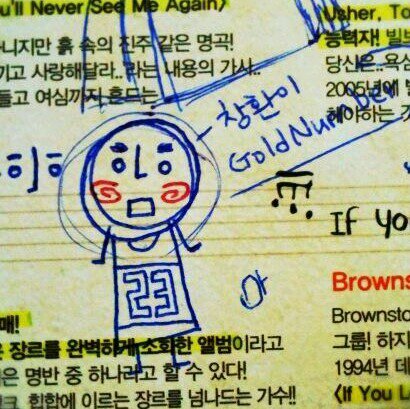 u'll Never See Me Again>
니지만 흙 속의 진주 같은 명곡!
기고 사랑해달라..라는 내용의 가사..
들고 여심까지 흔드는
Usher, To
능력자! 빌보
당신은. 욕심
2005년에
창환이
GoldNumber
23
If Yo
Browns
Brownsto
그룹! 하지
1994년 데
<If You L
매!
은 장르를 완벽하게 소화한 앨범이라고
은 명반 중 하나라고 할 수 있다!
크, 힙합에 이르는 장르를 넘나드는 가수!!